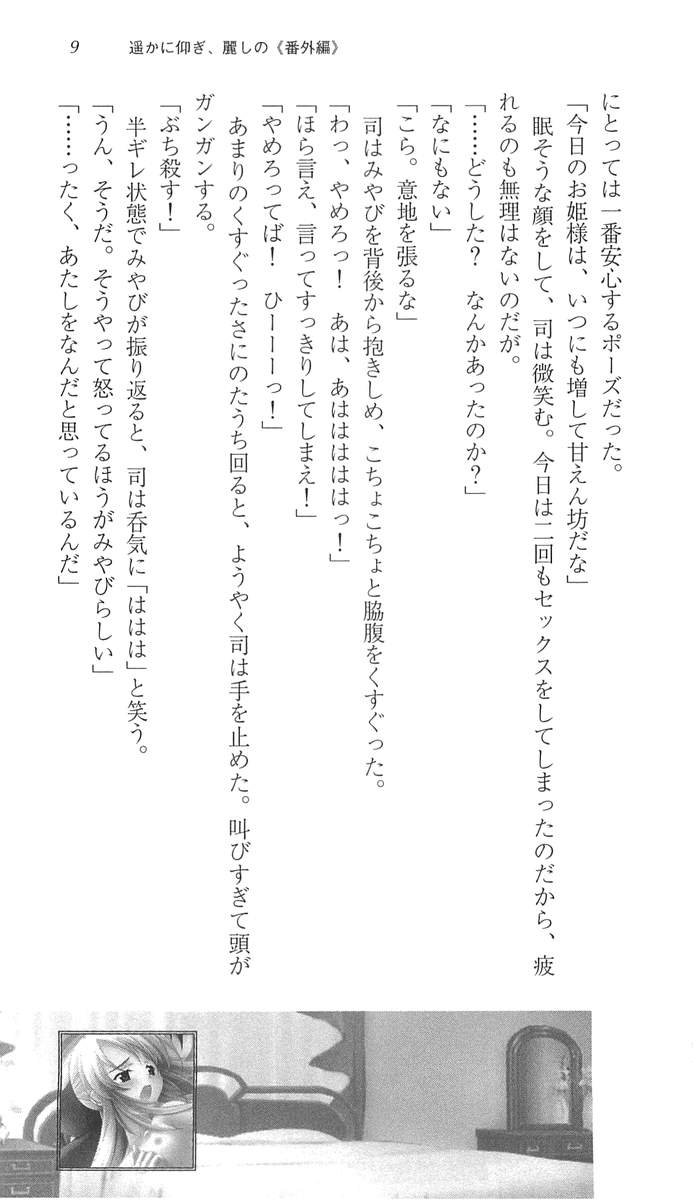 9　遥かに仰ぎ、麗しの《番外編》
にとっては一番安心するポーズだった。
「今日のお姫様は、いつにも増して甘えん坊だな」
　眠そうな顔をして、司は微笑む。今日は二回もセックスをしてしまったのだから、疲
れるのも無理はないのだが。
「……どうした？　なんかあったのか？」
「なにもない」
「こら。意地を張るな」
　司はみやびを背後から抱きしめ、こちょこちょと脇腹をくすぐった。
「わっ、やめろっ！　あは、あはははははっ！」
「ほら言え、言ってすっきりしてしまえ！」
「やめろってば！　ひーーーっ！」
　あまりのくすぐったさにのたうち回ると、ようやく司は手を止めた。叫びすぎて頭が
ガンガンする。
「ぶち殺す！」
　半ギレ状態でみやびが振り返ると、司は呑気に「ははは」と笑う。
「うん、そうだ。そうやって怒ってるほうがみやびらしい」
「……ったく、あたしをなんだと思っているんだ」